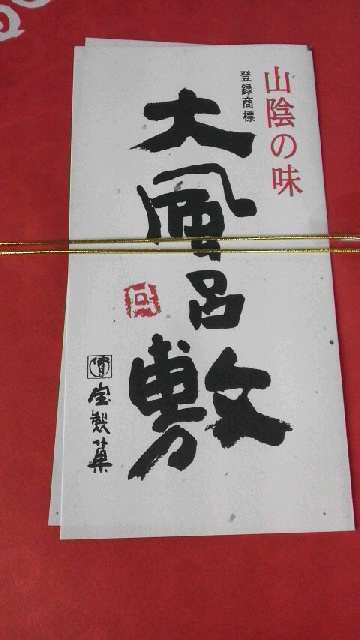 山陰の味
登録商標
大風呂敷
宝製菓